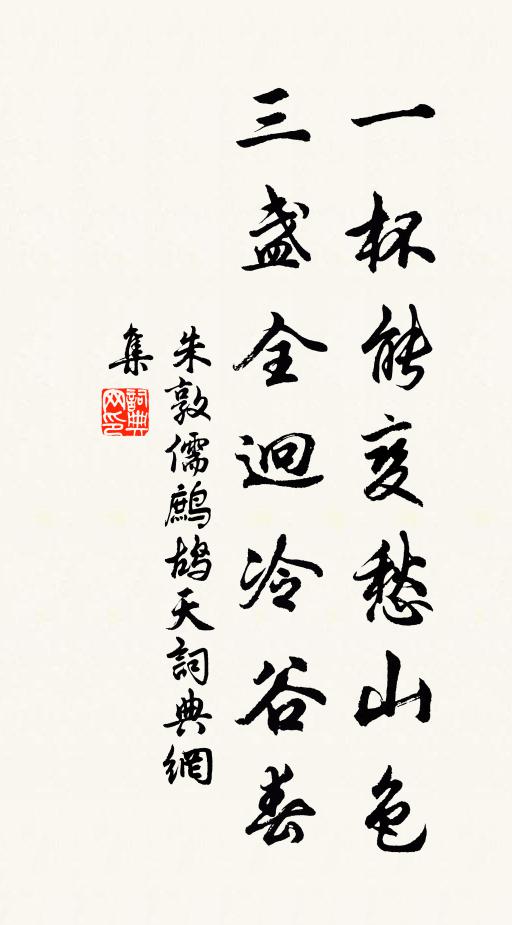 一杯能变愁山色
三盏全迴冷谷春
朱敦儒鷓鴣天詞典網
集
詞典
网印